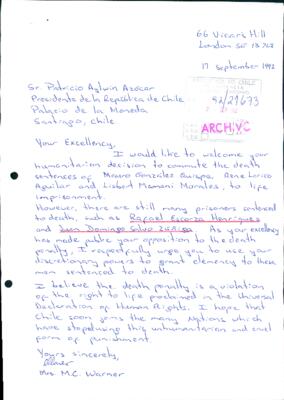 66 Vicar's Hill
London SE 13 7JL
17 September 1992
92/21673
ARCHIVO
Sr. Patricio Aylwin Azócar
Presidente de la República de Chile
Palacio de la Moneda
Santiago, Chile
Your Excellency,
I would like to welcome your
humanitarian decision to commute the death
sentences of Mauro González Quispe, René Lorico
Aguilar and Lisbert Mamani Morales, to life
imprisonment.
However, there are still many prisoners sentenced
to death, such as Rafael Escorza Henríquez
and Juan Domingo Salvo Zúñiga. As your excellency
has made public your opposition to the death
penalty, I respectfully urge you to use your
discretionary powers to grant clemency to these
men sentenced to death.
I believe the death penalty is a violation
of the right to life proclaimed in the Universal
Declaration of Human Rights. I hope that
Chile soon joins the many Nations which
have stopped using this unhumanitarian and cruel
form of punishment.
Yours sincerely,
Mrs M.C. Warner